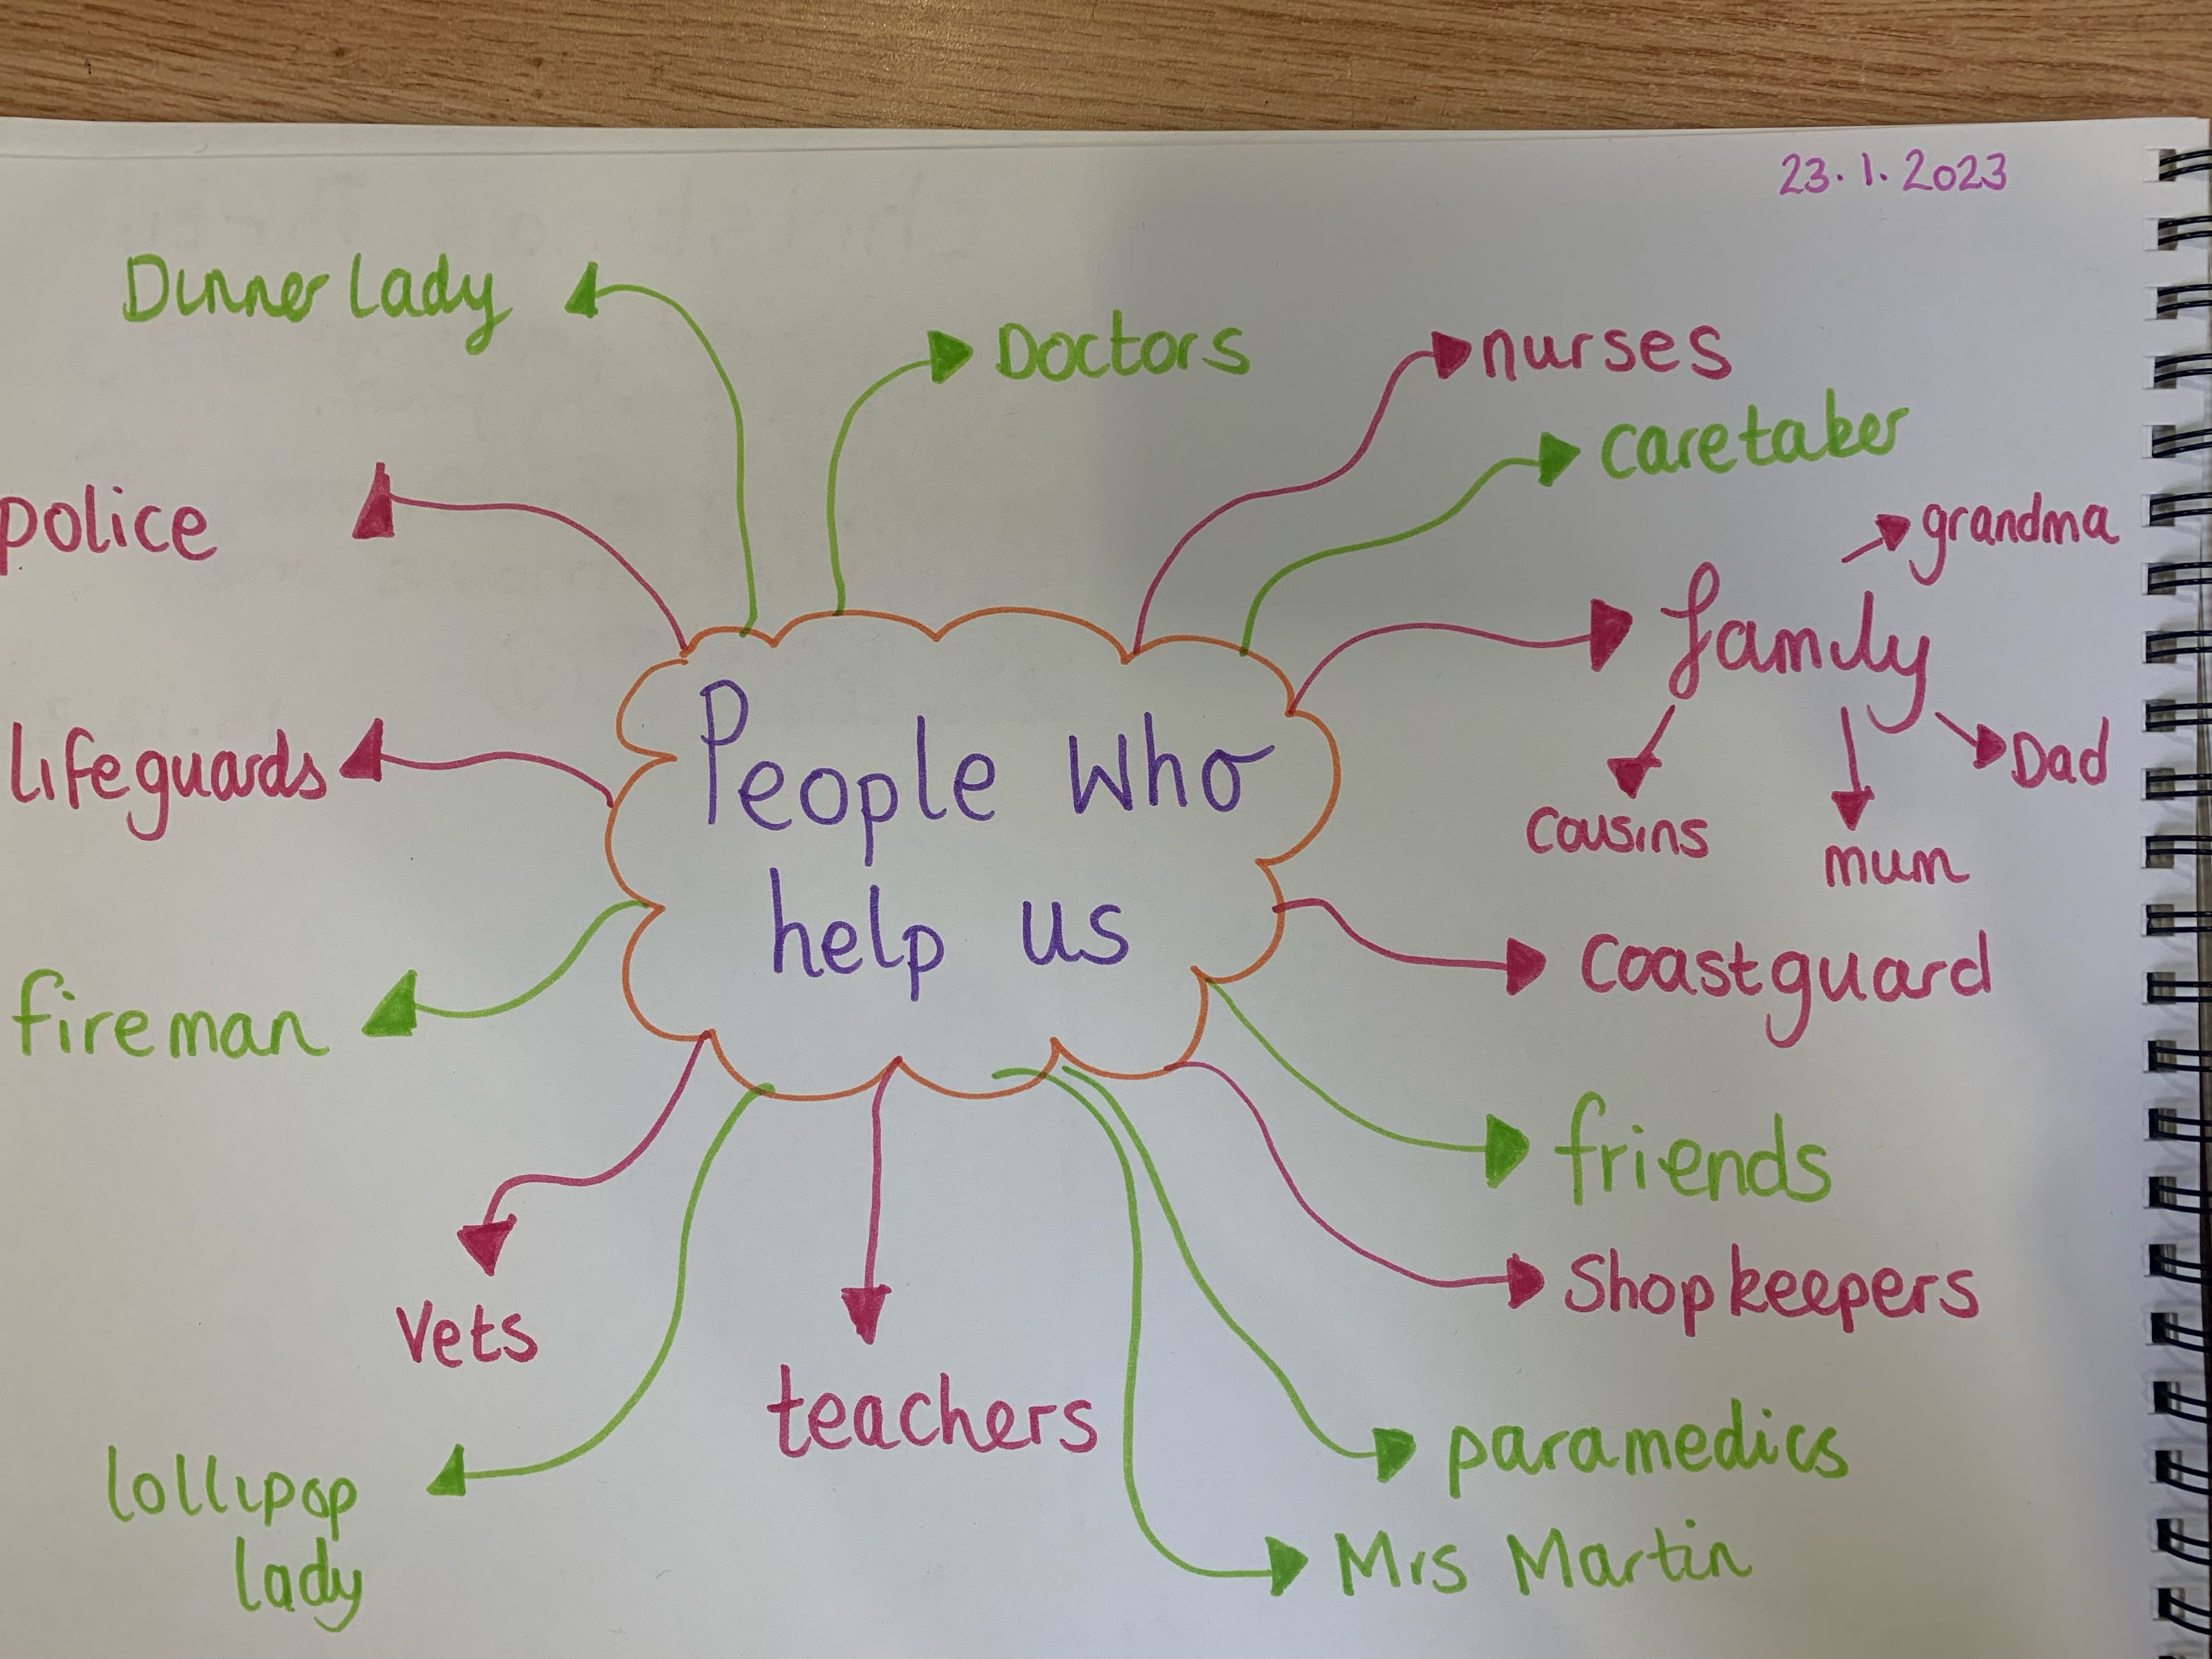 23.1.2023
Dinner lady
Doctors
nurses
caretaker
grandma
police
family
Dad
cousins
mum
lifeguards
People who
help us
coastguard
fireman
friends
Shopkeepers
Vets
teachers
paramedics
lollipop
lady
Mrs Martin